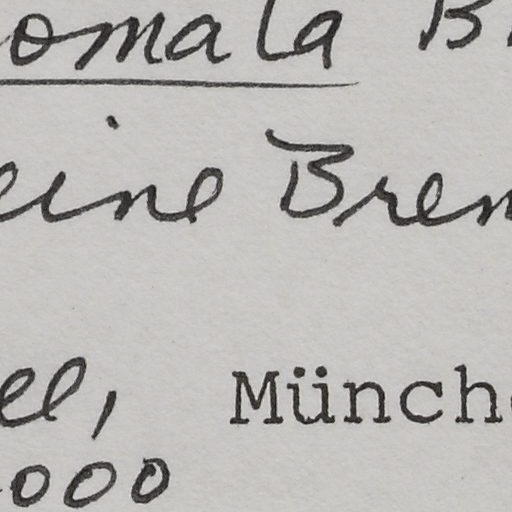 omala B
eine Bren
ee, Münch
000